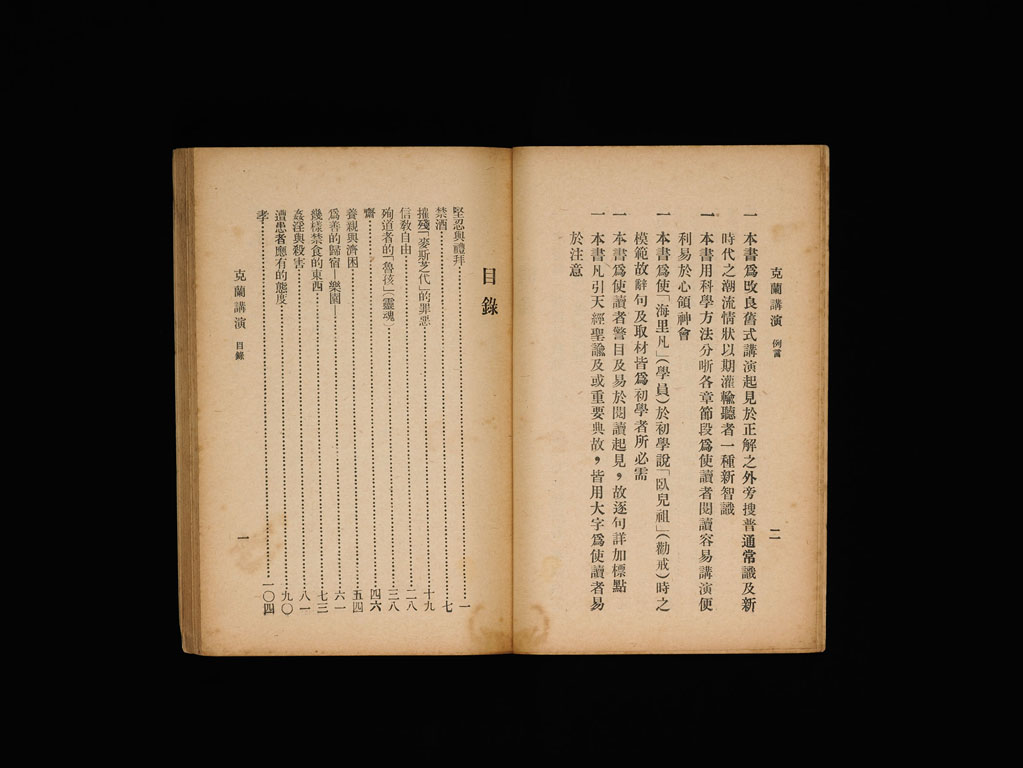 克蘭講演　例言
二
一本書爲改良舊式講演起見於正解之外旁搜普通常識及新
時代之潮流情狀以期灌輸聽者一種新智識
一本書用科學方法分晣各章節段爲使讀者閱讀容易講演便
利易於心領神會
一本書爲使「海里凡」(學員)於初學說「臥兒祖」(勸戒)時之
模範故辭句及取材皆爲初學者所必需
一本書爲使讀者警目及易於閱讀起見，故逐句詳加標點
一本書凡引天經聖諭及或重要典故，皆用大字爲使讀者易
於注意
目錄
堅忍與禮拜……一
禁酒……七
摧殘「麥斯芝代」的罪惡……十九
信敎自由……二八
殉道者的「魯孩」(靈魂)……三八
齋……四六
養親與濟困……五四
爲善的歸宿—樂園—……六一
幾樣禁食的東西……七三
姦淫與殺害……八一
遭患者應有的態度……九〇
孝……一〇四
克蘭講演　目錄
一